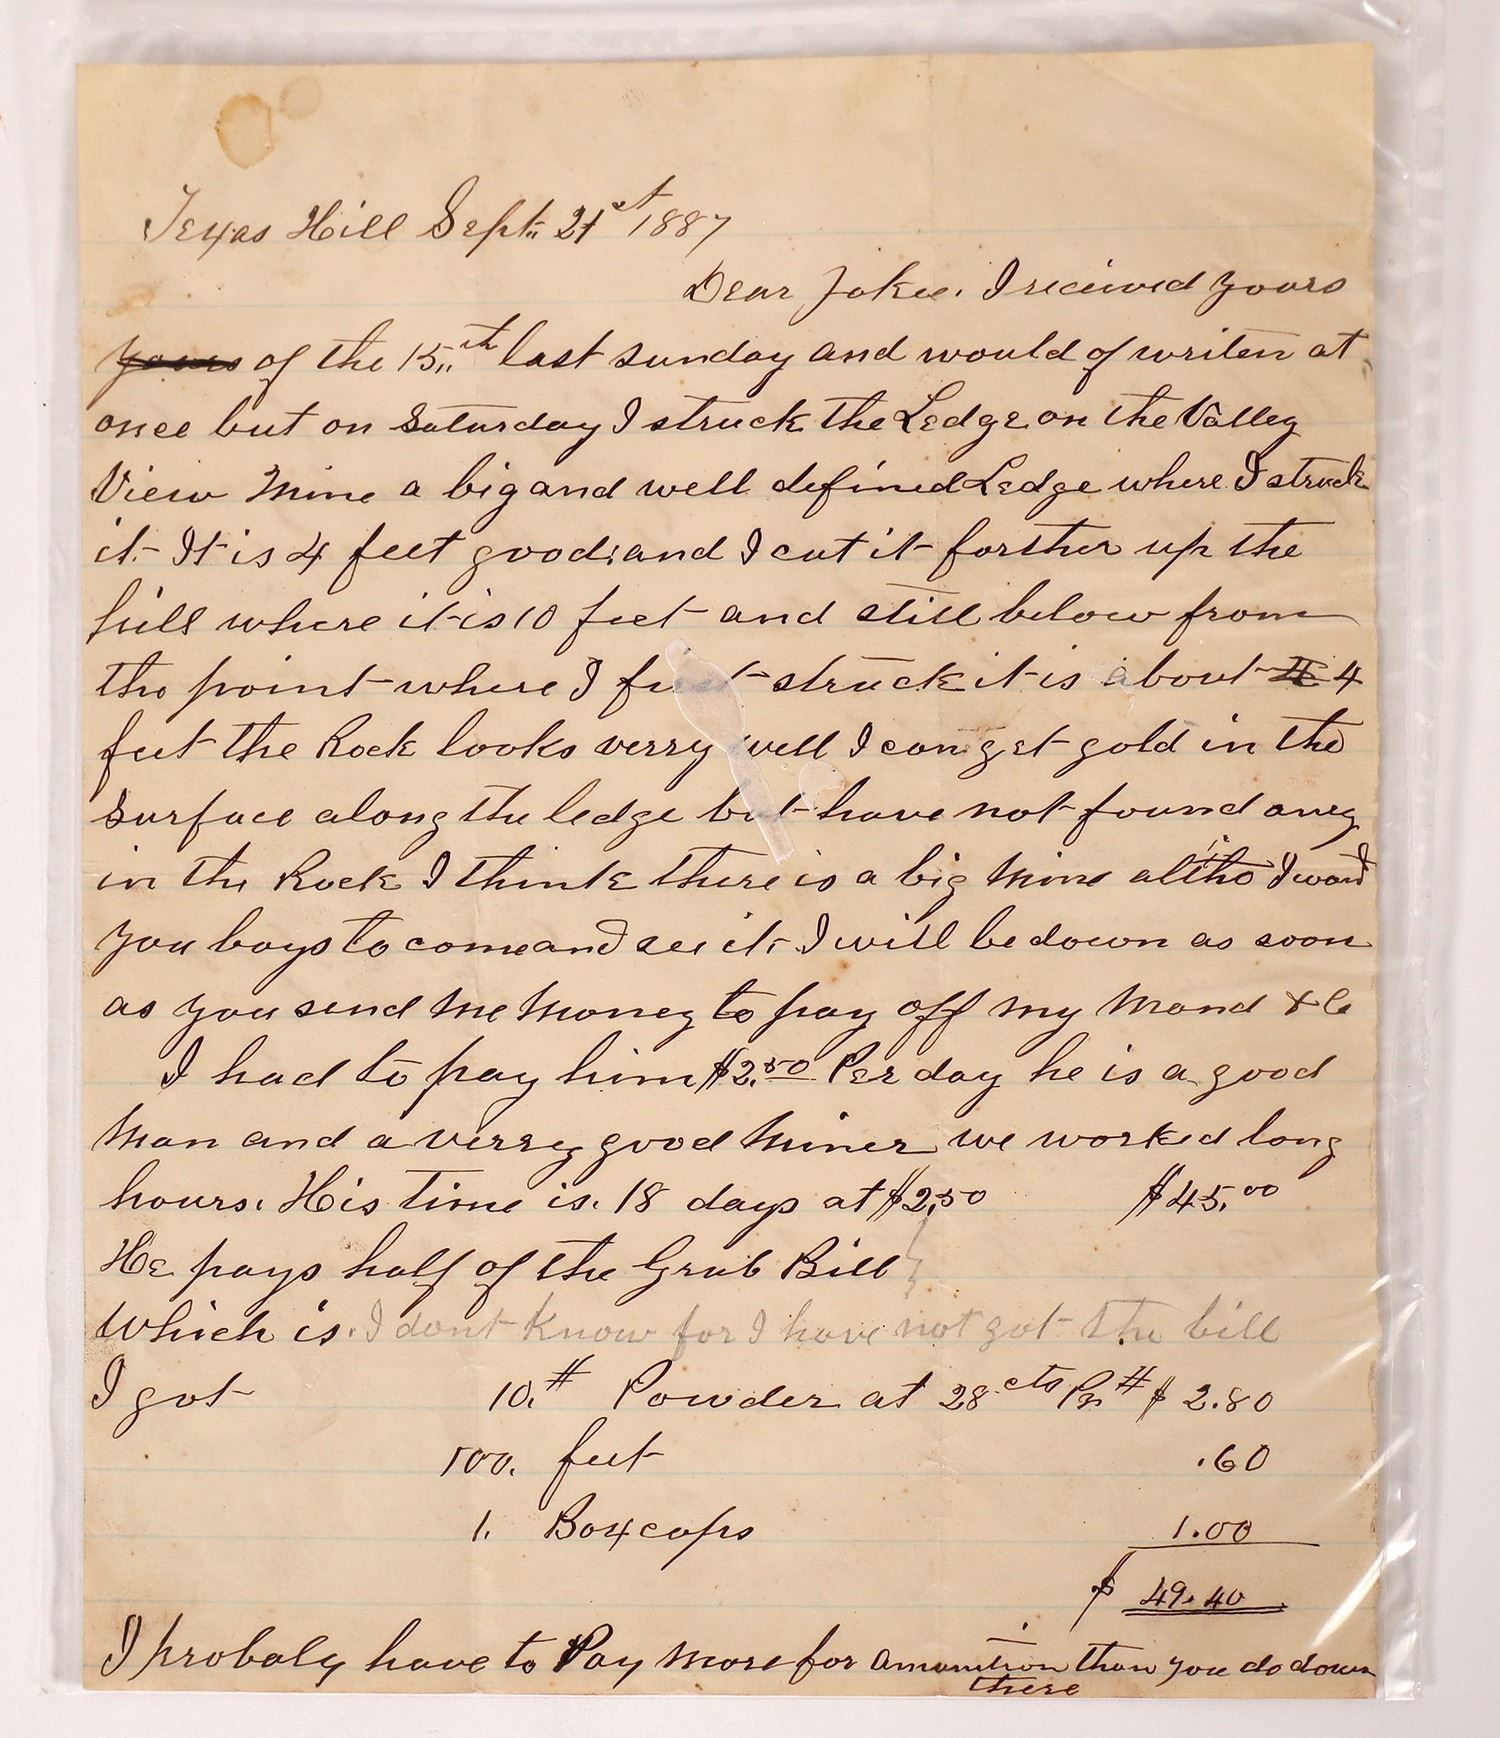 Texas Hill Sept. 21st 1887
Dear Jakie. I received yours
yours of the 15.,th last sunday and would of writen at
once but on Saturday I struck the Ledge on the Valley
View Mine a big and well defined Ledge where I struck
it It is 4 feet good; and I cut it forther up the
hill where it is 10 feet and still below from
the point where I struck it is about 4
feet the Rock looks verry well I can get gold in the
surface along the ledge but have not found any
in the Rock I think there is a big Mine altho I want
you boys to come and see it I will be down as soon
as you send me money to pay off my Mand &c
I had to pay him $2.50 Per day he is a good
Man and a verry good Miner we worked long
hours. His time is. 18 days at $2.50 $45.00
He pays half of the Grub Bill }
Which is. I dont know for I have not got the bill
I got 10.# Powder at 28 cts Pr # $ 2.80
100. feet .60
1. Box caps 1.00
$ 49.40
I probaly have to Pay more for amunition than you do down
there